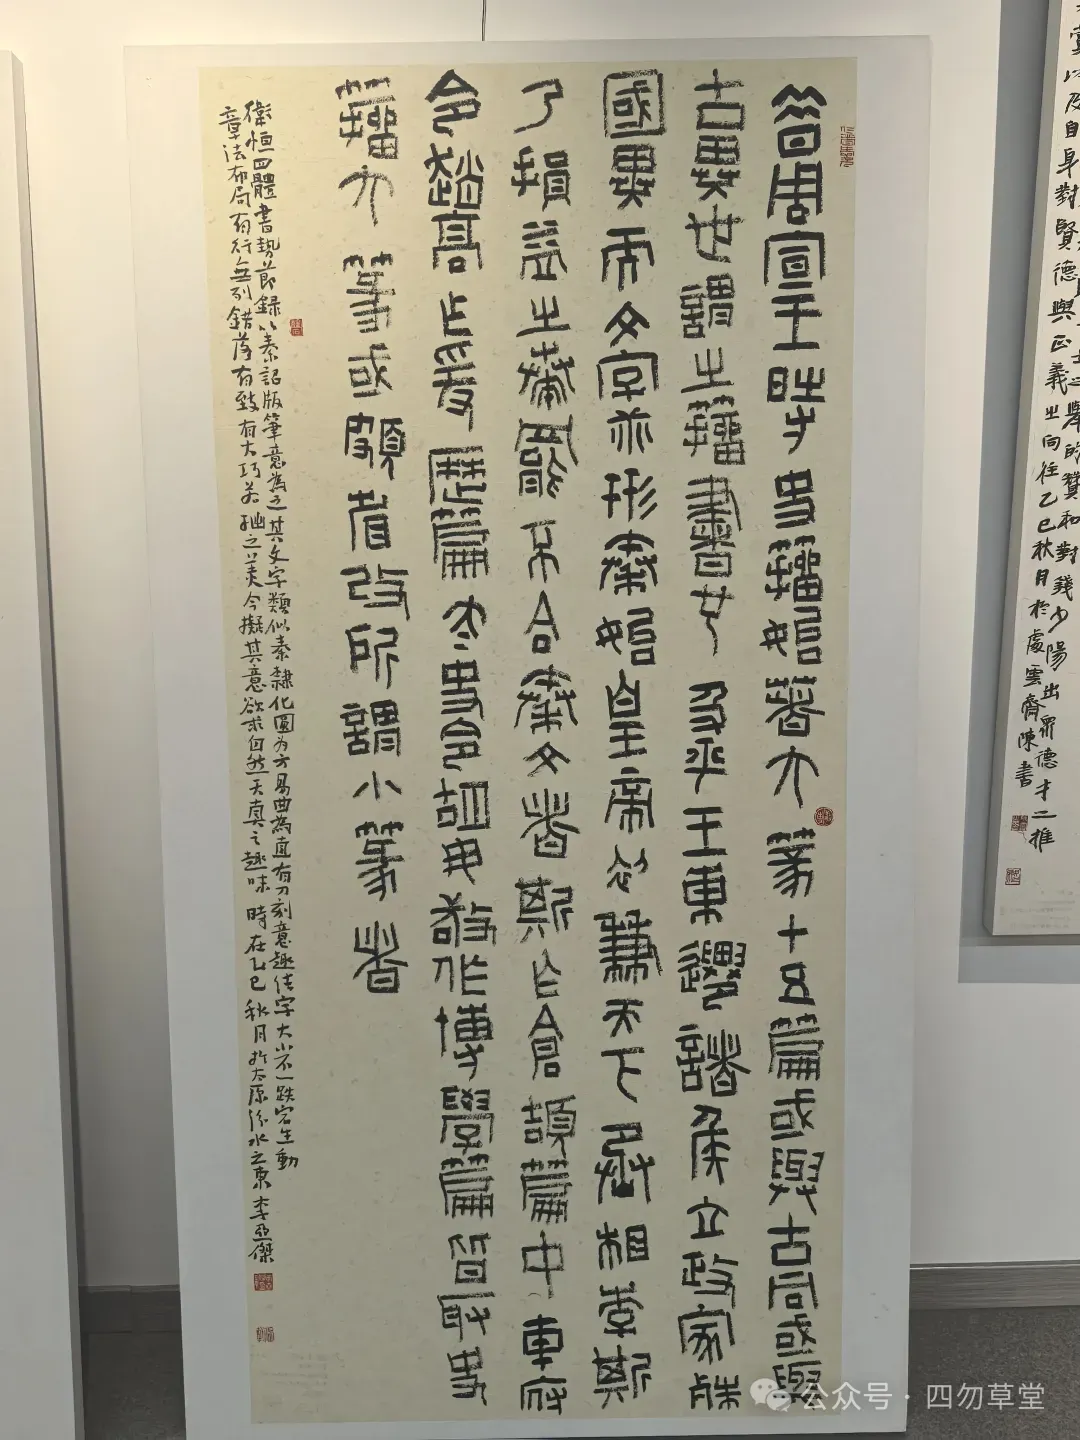 昔周宣王時史籀始著大篆十五篇或與古同或與
古異世謂之籀書也及平王東遷諸侯立政家殊
國異而文字乖形秦始皇帝初兼天下丞相李斯
乃損益之奏罷不合秦文者斯作倉頡篇中車府
令趙高作爰歷篇太史令胡毋敬作博學篇皆取史
籀大篆或頗省改所謂小篆者
衛恒四體書勢節錄以秦詔版筆意為之其文字類似秦隸化圓为方易曲為直有刀刻意趣佳字大小不一跌宕生動
章法布局有行無列錯落有致有大巧若拙之美今擬其意欲求自然天真之趣味時在乙巳秋月於太原汾水之東李亞傑
之舉的贊和對錢少陽出眾德才二推
以及自身對賢德與正義之向往乙巳秋月於處雲齋陳書
公众号·四勿草堂